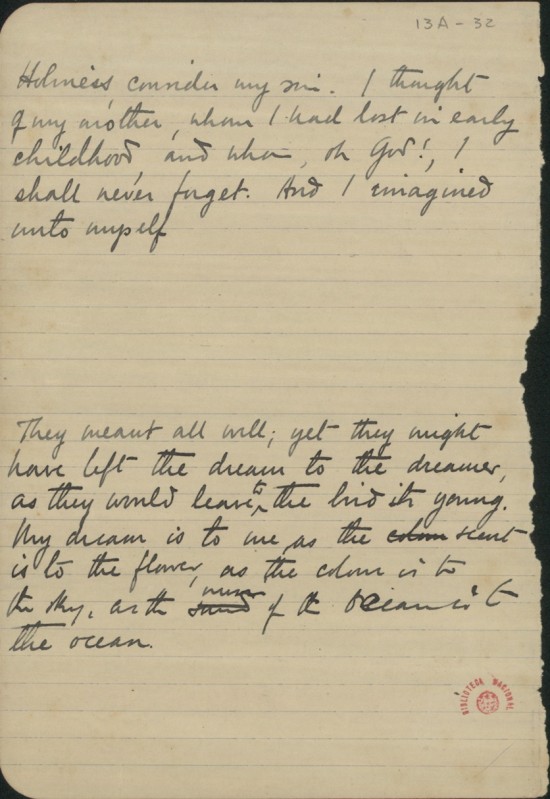 13A - 32
Holiness consider my sin. I thought
of my mother, whom I had lost in early
childhood and who, oh God!, I
shall never forget. And I imagined
unto myself
They meant all well; yet they might
have left the dream to the dreamer,
as they would leave to the bird its young.
My dream is to me as the colour scent
is to the flower, as the colour is to
the sky, as the of the ocean is to
the ocean.
BIBLIOTECA NACIONAL